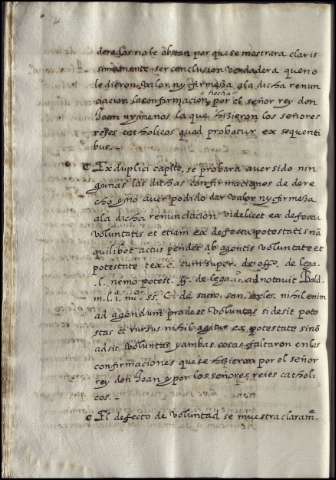 derechos no le obstan por que se mostrara claris
simamente ser conclusion verdadera que no
le dieron valor ny firmeza a la dicha renun
ciacion la confirmacion hecha por el señor rey don
Joan ny menos la que hizieron los señores
reyes catholicos quod probatur ex sequenti
bus.
Ex duplici capite, se probara aver sido nin
gunas las dichas confirmaciones de dere
cho y no aver podido dar valor ny firmeza
a la dicha renunciacion videlicet ex defectu
voluntatis et etiam ex defectu potestatis nã
quilibet actus pendet ab agentis voluntate et
potestate
l. nemo potest. ff. de lega. 1. ad notavit Bald.
nihil enim
ad agendum prodest voluntas si desit potes
tas et rursus nihil agitur ex potestate sino
adsit voluntas yambas cosas faltaron en las
confirmaciones que se hizieron por el señor
rey don Joan y por los señores reies catholi
cos.
El defecto de voluntad se muestra claram.